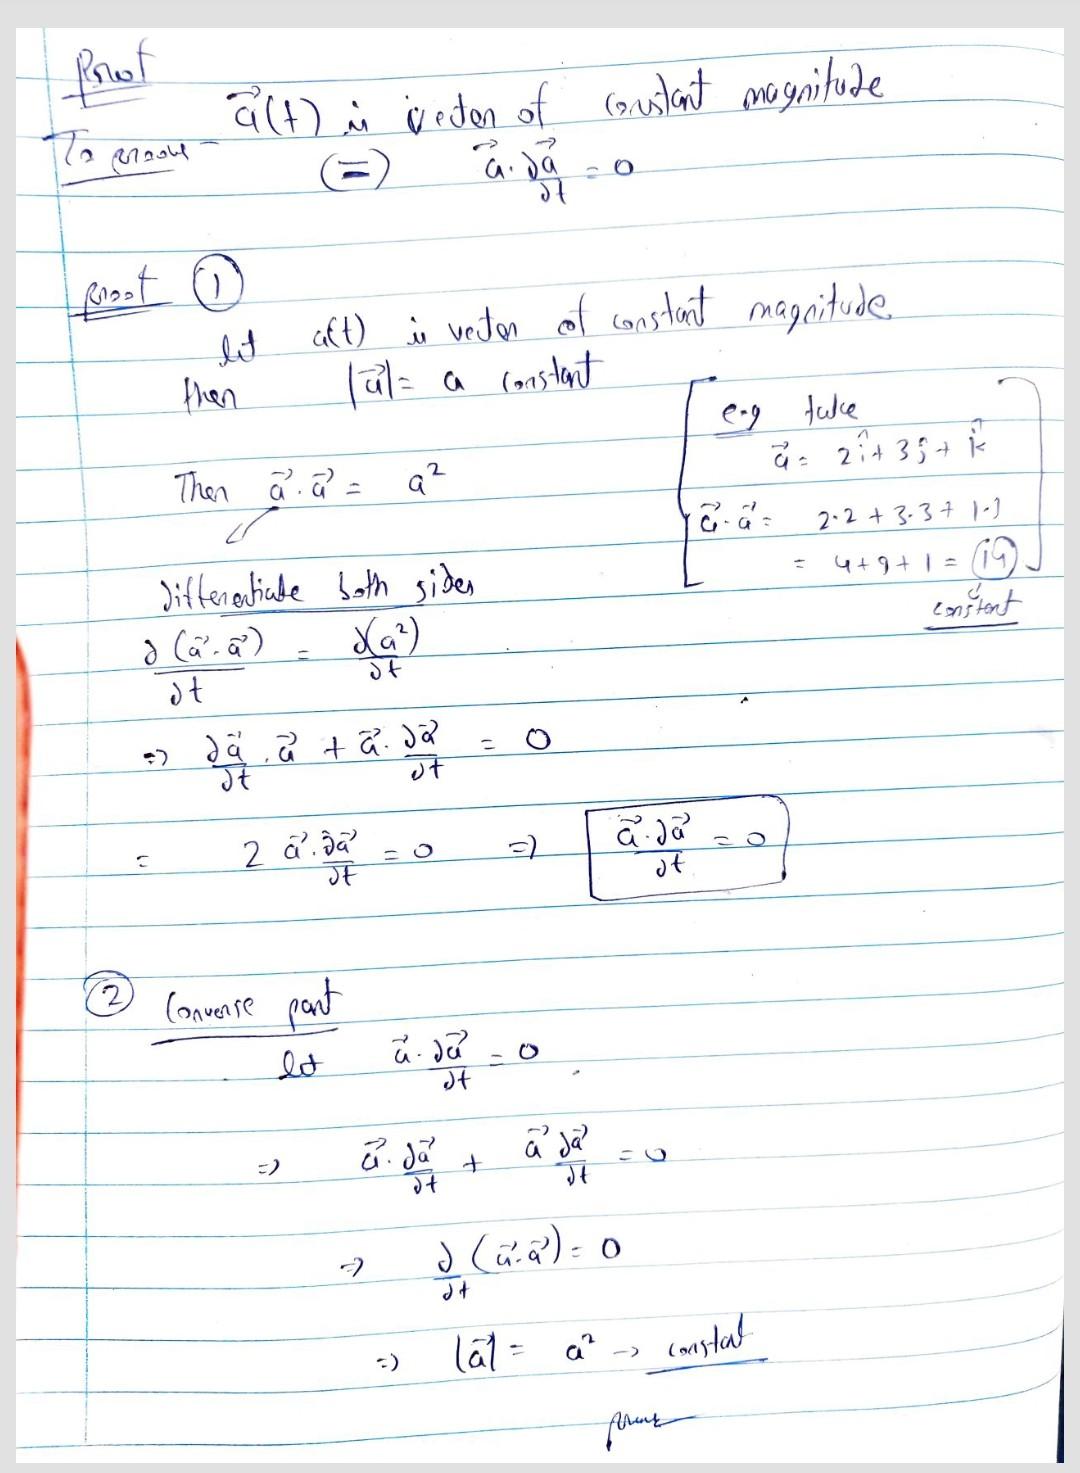 Proof
a⃗(t) is vector of constant magnitude
To prove - (=) a⃗ . ∂a⃗/∂t = 0
proof ①
let a(t) is vector of constant magnitude
then |a⃗| = a constant
Then a⃗ . a⃗ = a²
e.g take
a⃗ = 2î + 3j + k̂
a⃗ . a⃗ = 2.2 + 3.3 + 1.1
= 4 + 9 + 1 = 14
constant
differentiate both sides
∂(a⃗.a⃗)/∂t = ∂(a²)/∂t
=> ∂a⃗/∂t . a⃗ + a⃗ . ∂a⃗/∂t = 0
= 2 a⃗ . ∂a⃗/∂t = 0 => a⃗ . ∂a⃗/∂t = 0
② Converse part
let a⃗ . ∂a⃗/∂t = 0
=> a⃗ . ∂a⃗/∂t + a⃗ ∂a⃗/∂t = 0
=> ∂/∂t (a⃗.a⃗) = 0
=> |a⃗| = a² -> constant